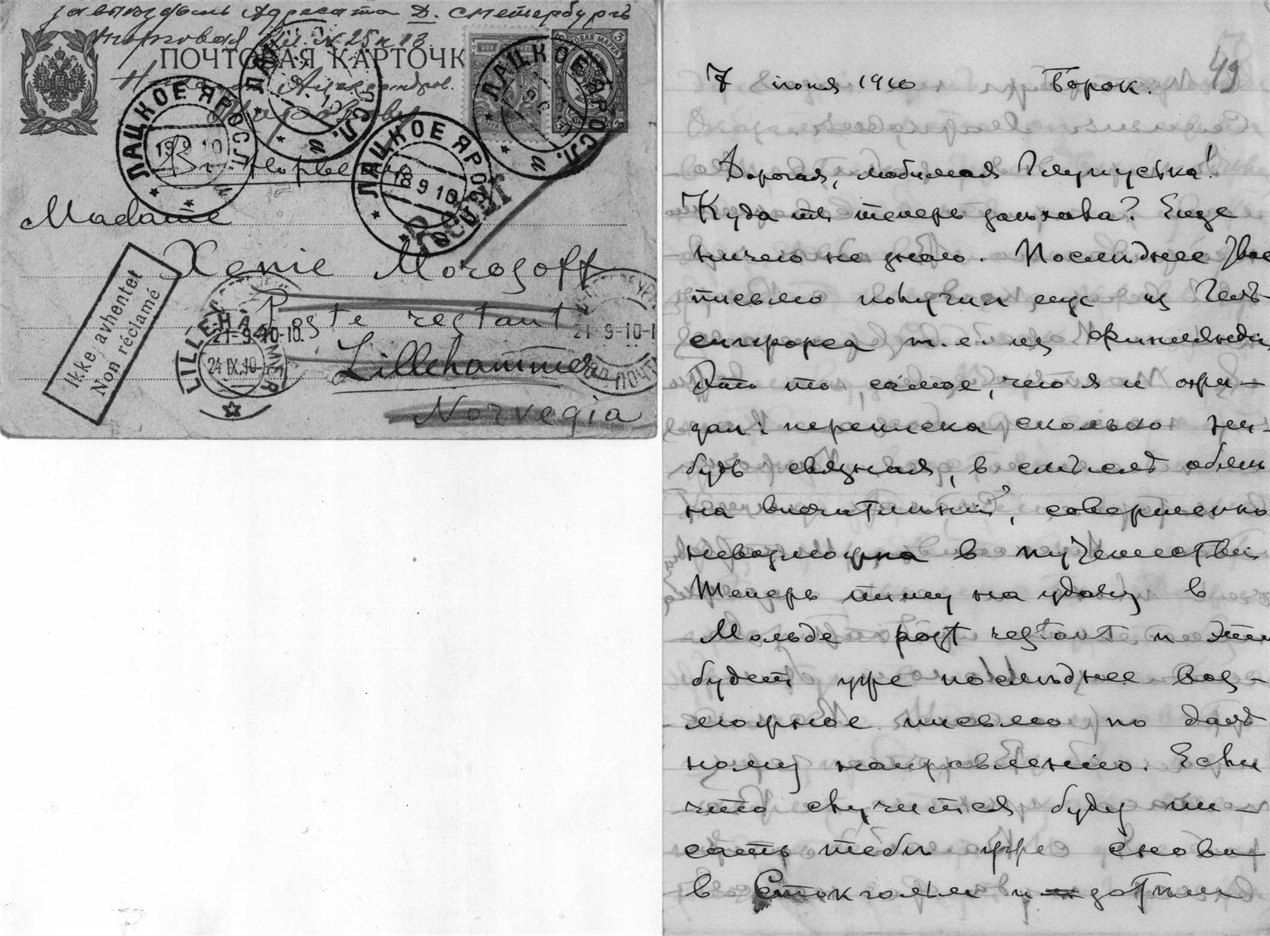 за выездомъ Адресата Д. С.петербургъ
ПОЧТОВАЯ КАРТОЧК
3
ЛАЦКОЕ ЯРОСЛ.
19 9 10
ЛАЦКОЕ ЯРОСЛ.
18 9 10
ЛАЦКОЕ ЯРОСЛ.
Madame
Xenie Morosoff
Poste restant
Lillehammer
Norvegia
Ikke avhentet
Non réclamé
LILLEHAMMER
24 IX 10
21-9-10-10.
21-9-10-1
49
7 июня 1910 Борок.
Дорогая, любимая Глупуська!
Куда ты теперь заехала? Еще
ничего не знаю. Последнее твое
письмо получил еще из Гель-
сингфорса т.е. из Финлянди
Это то, самое, чего я и ожи-
дал: переписка сколько ни-
будь связная, в смысле обмен
на впечатлений, совершенно
невозможна в путешестви
Теперь пишу на удачу в
Мольде post restant и это
будет уже последнее воз-
можное письмо по дан-
ному направлению. Если
что случится буду пи-
сать тебе уже снова
в Стокгольм и затем